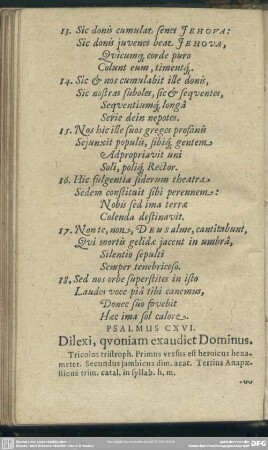 13. Sic donis cumulat senes JEHOVA:
Sic donis juvenes beat JEHOVA,
Qvicumq; corde puro
Colunt eum, timentq;.
14. Sic & nos cumulabit ille donis,
Sic nostras suboles, sic & seqventes,
Seqventiumq; longâ
Serie dein nepotes.
15. Nos hic ille suos greges profanis
Sejunxit populis, sibiq; gentem
Adpropriavit uni
Soli, poliq; Rector.
16. Hic fulgentia siderum theatra
Sedem constituit sibi perennem:
Nobis sed ima terræ
Colenda destinavit.
17. Non te, non, DEUS alme, cantitabunt,
Qvi mortis gelidæ jacent in umbrâ,
Silentio sepulti
Semper tenebricoso.
18. Sed nos orbe superstites in isto
Laudes voce piâ tibi canemus,
Donec suo fovebit
Hæc ima sol calore.
PSALMUS CXVI.
Dilexi, qvoniam exaudiet Dominus.
Tricolos tristroph. Primus versus est heroicus hexa-
meter. Secundus jambicus dim. acat. Tertius Anapæ-
sticus trim. catal. in syllab. h. m.
-vv